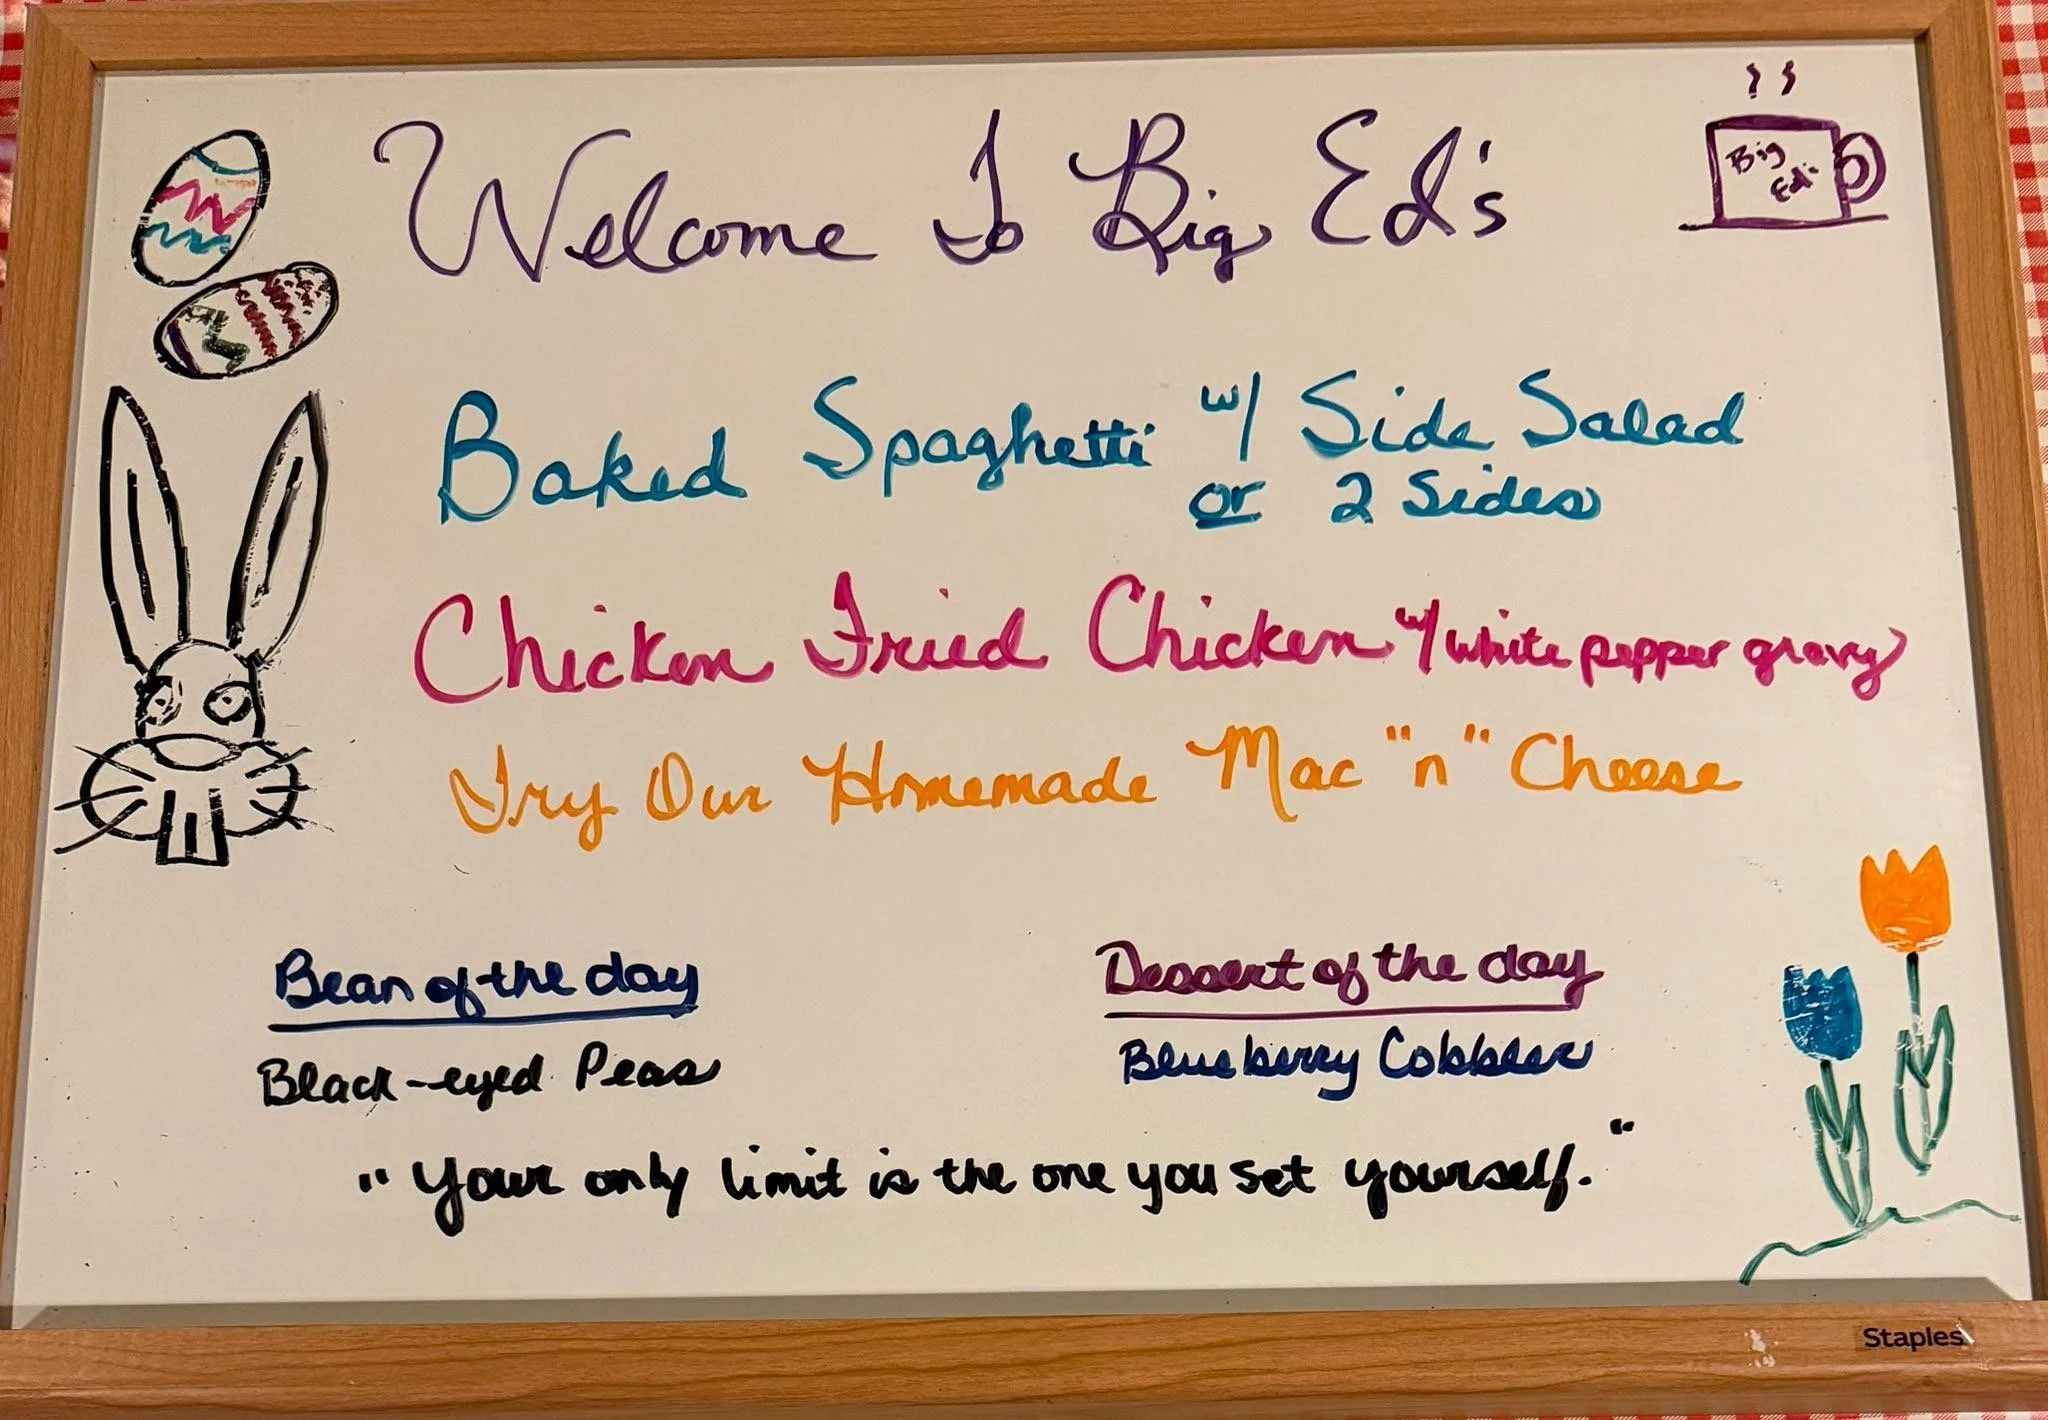 Welcome To Big Ed's
Big
Ed's
Baked Spaghetti w/ Side Salad
or 2 Sides
Chicken Fried Chicken w/ white pepper gravy
Try Our Homemade Mac "n" Cheese
Bean of the day
Black-eyed Peas
Dessert of the day
Blueberry Cobbler
"Your only limit is the one you set yourself."
Staples